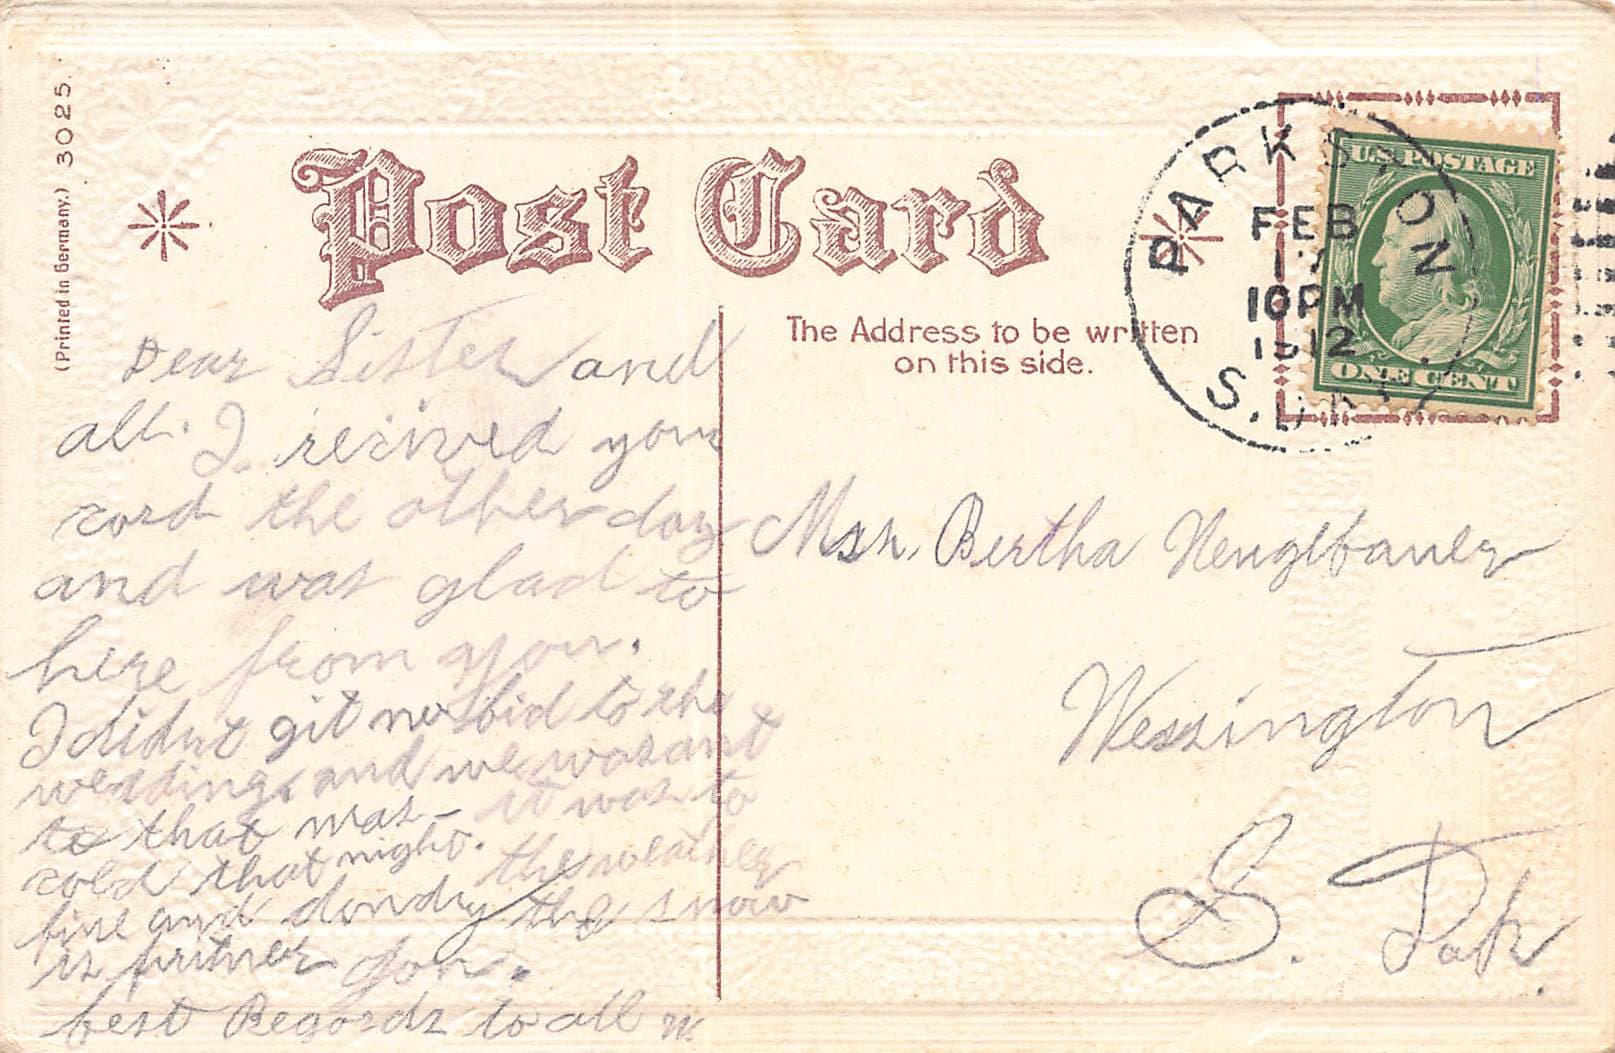 (Printed in Germany.) 3025.
Post Card
The Address to be written
on this side.
PARKSTON
FEB
17
10PM
1912
S. DAK.
U.S. POSTAGE
ONE CENT
Dear Sister and
all. I recived your
card the other day
and was glad to
here from you.
I didnt git no bid to the
wedding. and we wasant
to that mas- it was to
cold that night. the weather
fine and dondry the snow
is pritner gon.
best Regards to all
Mrs. Bertha Neuglbauer
Wessington
S. Dak.